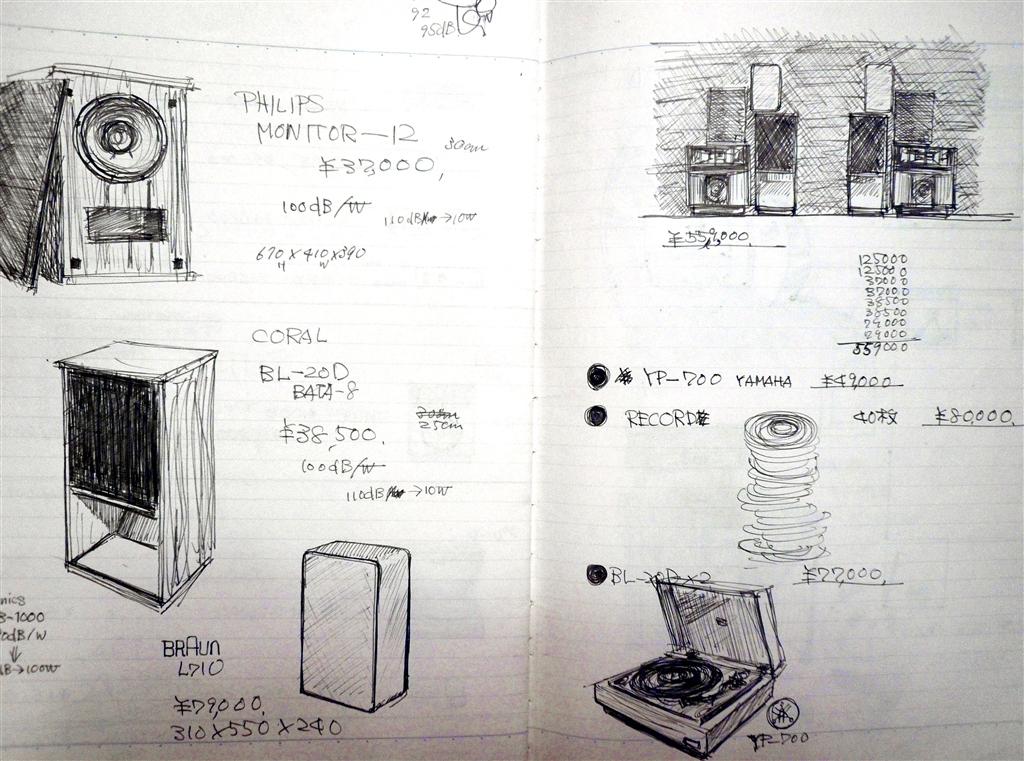 92
95dB
PHILIPS
MONITOR-12
30cm
¥37,000,
100dB/W
110dB → 10W
670 × 410 × 390
H W
CORAL
BL-20D
BATA-8
30cm
25cm
¥38,500.
100dB/W
110dB → 10W
nics
B-1000
0dB/W
↓
dB → 100W
BRAUN
L710
¥79,000,
310×550×240
¥559,000,
125000
125000
37000
37000
38500
38500
79000
79000
559000
YP-700 YAMAHA ¥49,000
RECORD 40枚 ¥80,000,
BL-20D×2 ¥77,000,
YP-700